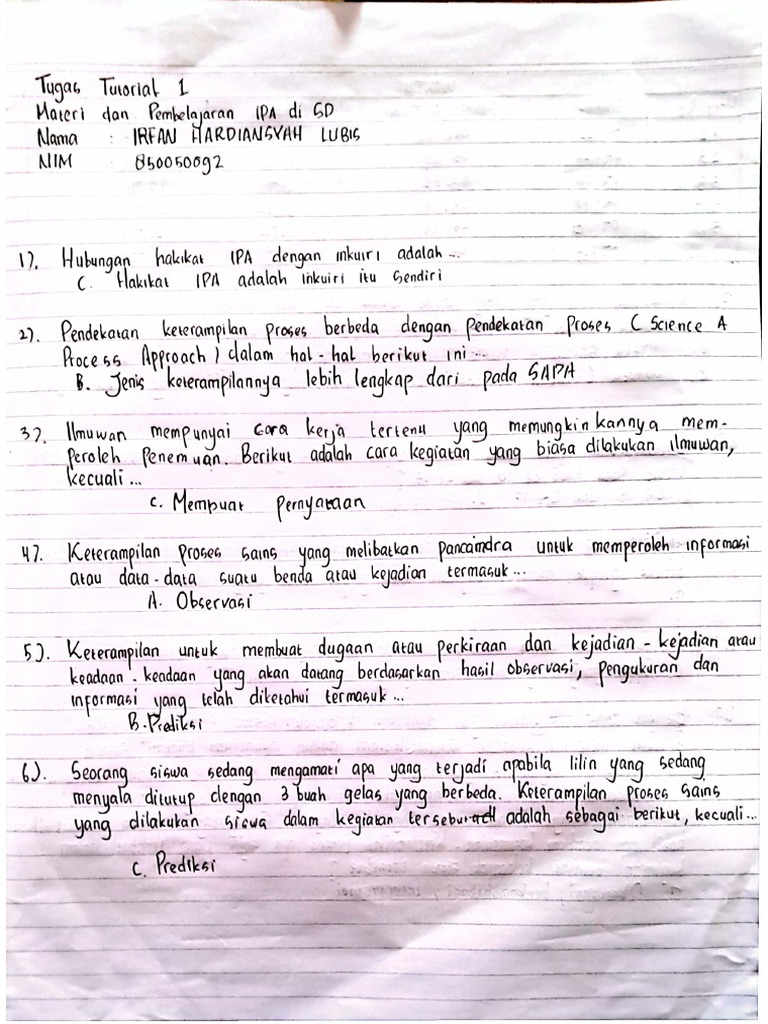 Tugas Tutorial 1
Materi dan Pembelajaran IPA di SD
Nama : IRFAN HARDIANSYAH LUBIS
NIM : 850050092
1). Hubungan hakikat IPA dengan inkuiri adalah...
C. Hakikat IPA adalah inkuiri itu sendiri
2). Pendekatan keterampilan proses berbeda dengan pendekatan proses ( Science A
Process Approach ) dalam hal-hal berikut ini...
B. Jenis keterampilannya lebih lengkap dari pada SAPA
3). Ilmuwan mempunyai cara kerja tertenu yang memungkinkannya mem-
peroleh penemuan. Berikut adalah cara kegiatan yang biasa dilakukan ilmuwan,
kecuali...
C. Mempuat pernyataan
4). Keterampilan proses sains yang melibatkan pancaindra untuk memperoleh informasi
atau data-data suatu benda atau kejadian termasuk...
A. Observasi
5). Keterampilan untuk membuat dugaan atau perkiraan dan kejadian-kejadian atau
keadaan-keadaan yang akan datang berdasarkan hasil observasi, pengukuran dan
informasi yang telah diketahui termasuk...
B. Prediksi
6). Seorang siswa sedang mengamati apa yang terjadi apabila lilin yang sedang
menyala ditutup dengan 3 buah gelas yang berbeda. Keterampilan proses sains
yang dilakukan siswa dalam kegiatan tersebut adalah sebagai berikut, kecuali...
C. Prediksi